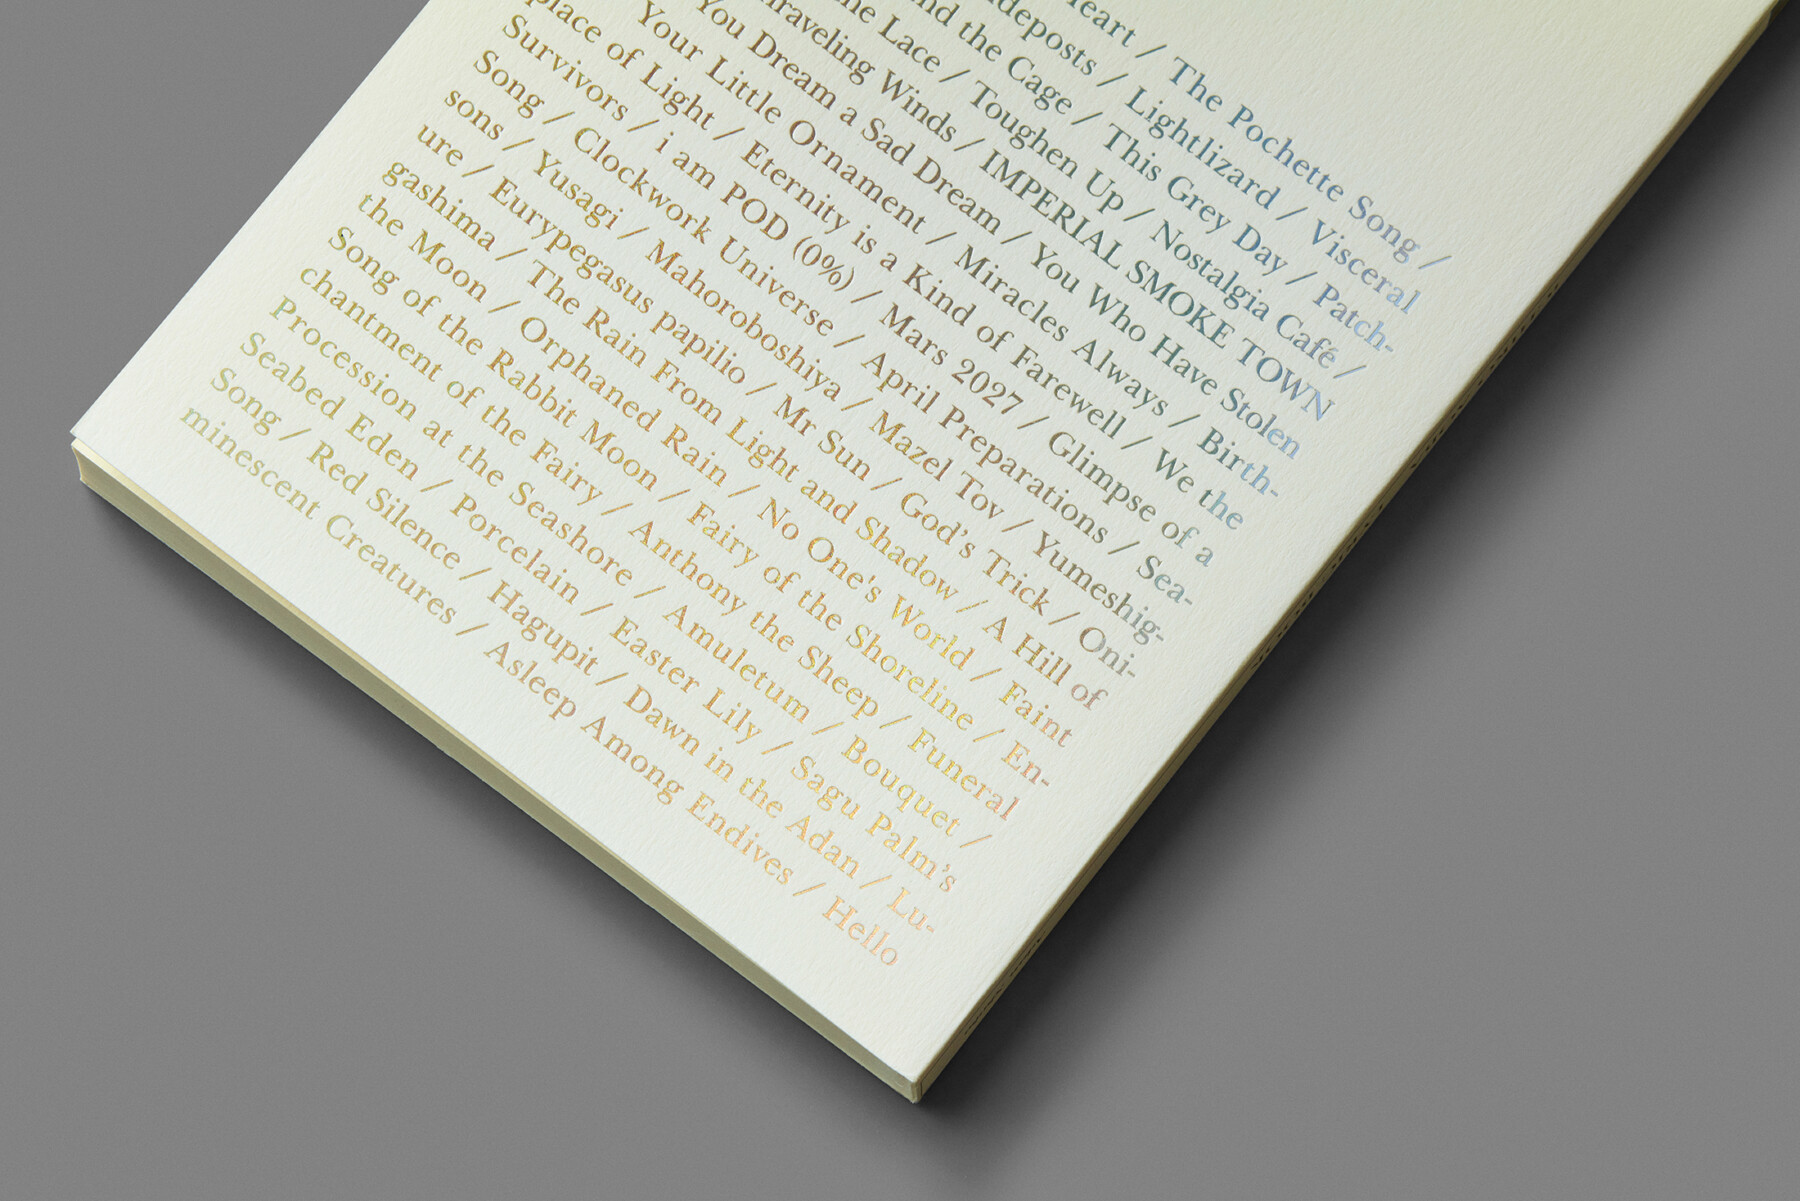 Heart / The Pochette Song /
deposts / Lightlizard / Visceral
the Cage / This Grey Day / Patch-
Lace / Toughen Up / Nostalgia Café /
nraveling Winds / IMPERIAL SMOKE TOWN
You Dream a Sad Dream / You Who Have Stolen
Your Little Ornament / Miracles Always / Birth-
place of Light / Eternity is a Kind of Farewell / We the
Survivors / i am POD (0%) / Mars 2027 / Glimpse of a
Song / Clockwork Universe / April Preparations / Sea-
sons / Yusagi / Mahoroboshiya / Mazel Tov / Yumeshig-
ure / Eurypegasus papilio / Mr Sun / God's Trick / Oni-
gashima / The Rain From Light and Shadow / A Hill of
the Moon / Orphaned Rain / No One's World / Faint
Song of the Rabbit Moon / Fairy of the Shoreline / En-
chantment of the Fairy / Anthony the Sheep / Funeral
Procession at the Seashore / Amuletum / Bouquet /
Seabed Eden / Porcelain / Easter Lily / Sagu Palm's
Song / Red Silence / Hagupit / Dawn in the Adan / Lu-
minescent Creatures / Asleep Among Endives / Hello